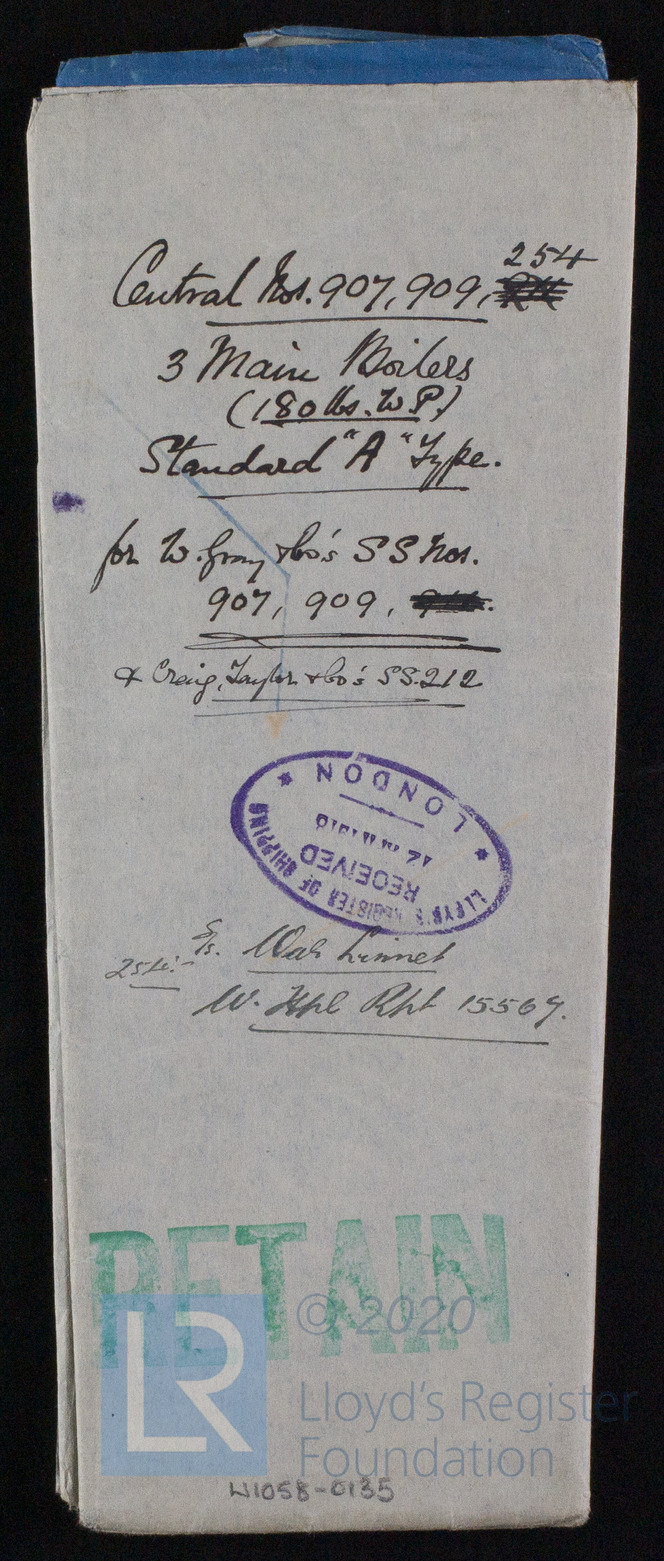 254
Central Nos. 907, 909,
3 Main Boilers
(180 lbs. W.P.)
Standard "A" Type.
for W. Gray & Co's SS Nos.
907, 909,
& Craig, Taylor & Co's SS. 212
LLOYD'S REGISTER OF SHIPPING
RECEIVED
LONDON
S/s. War Linnet
254:-
W. Hpl Rpt 15567.
RETAIN
© 2020
LR
Lloyd's Register
Foundation
W1058-0135